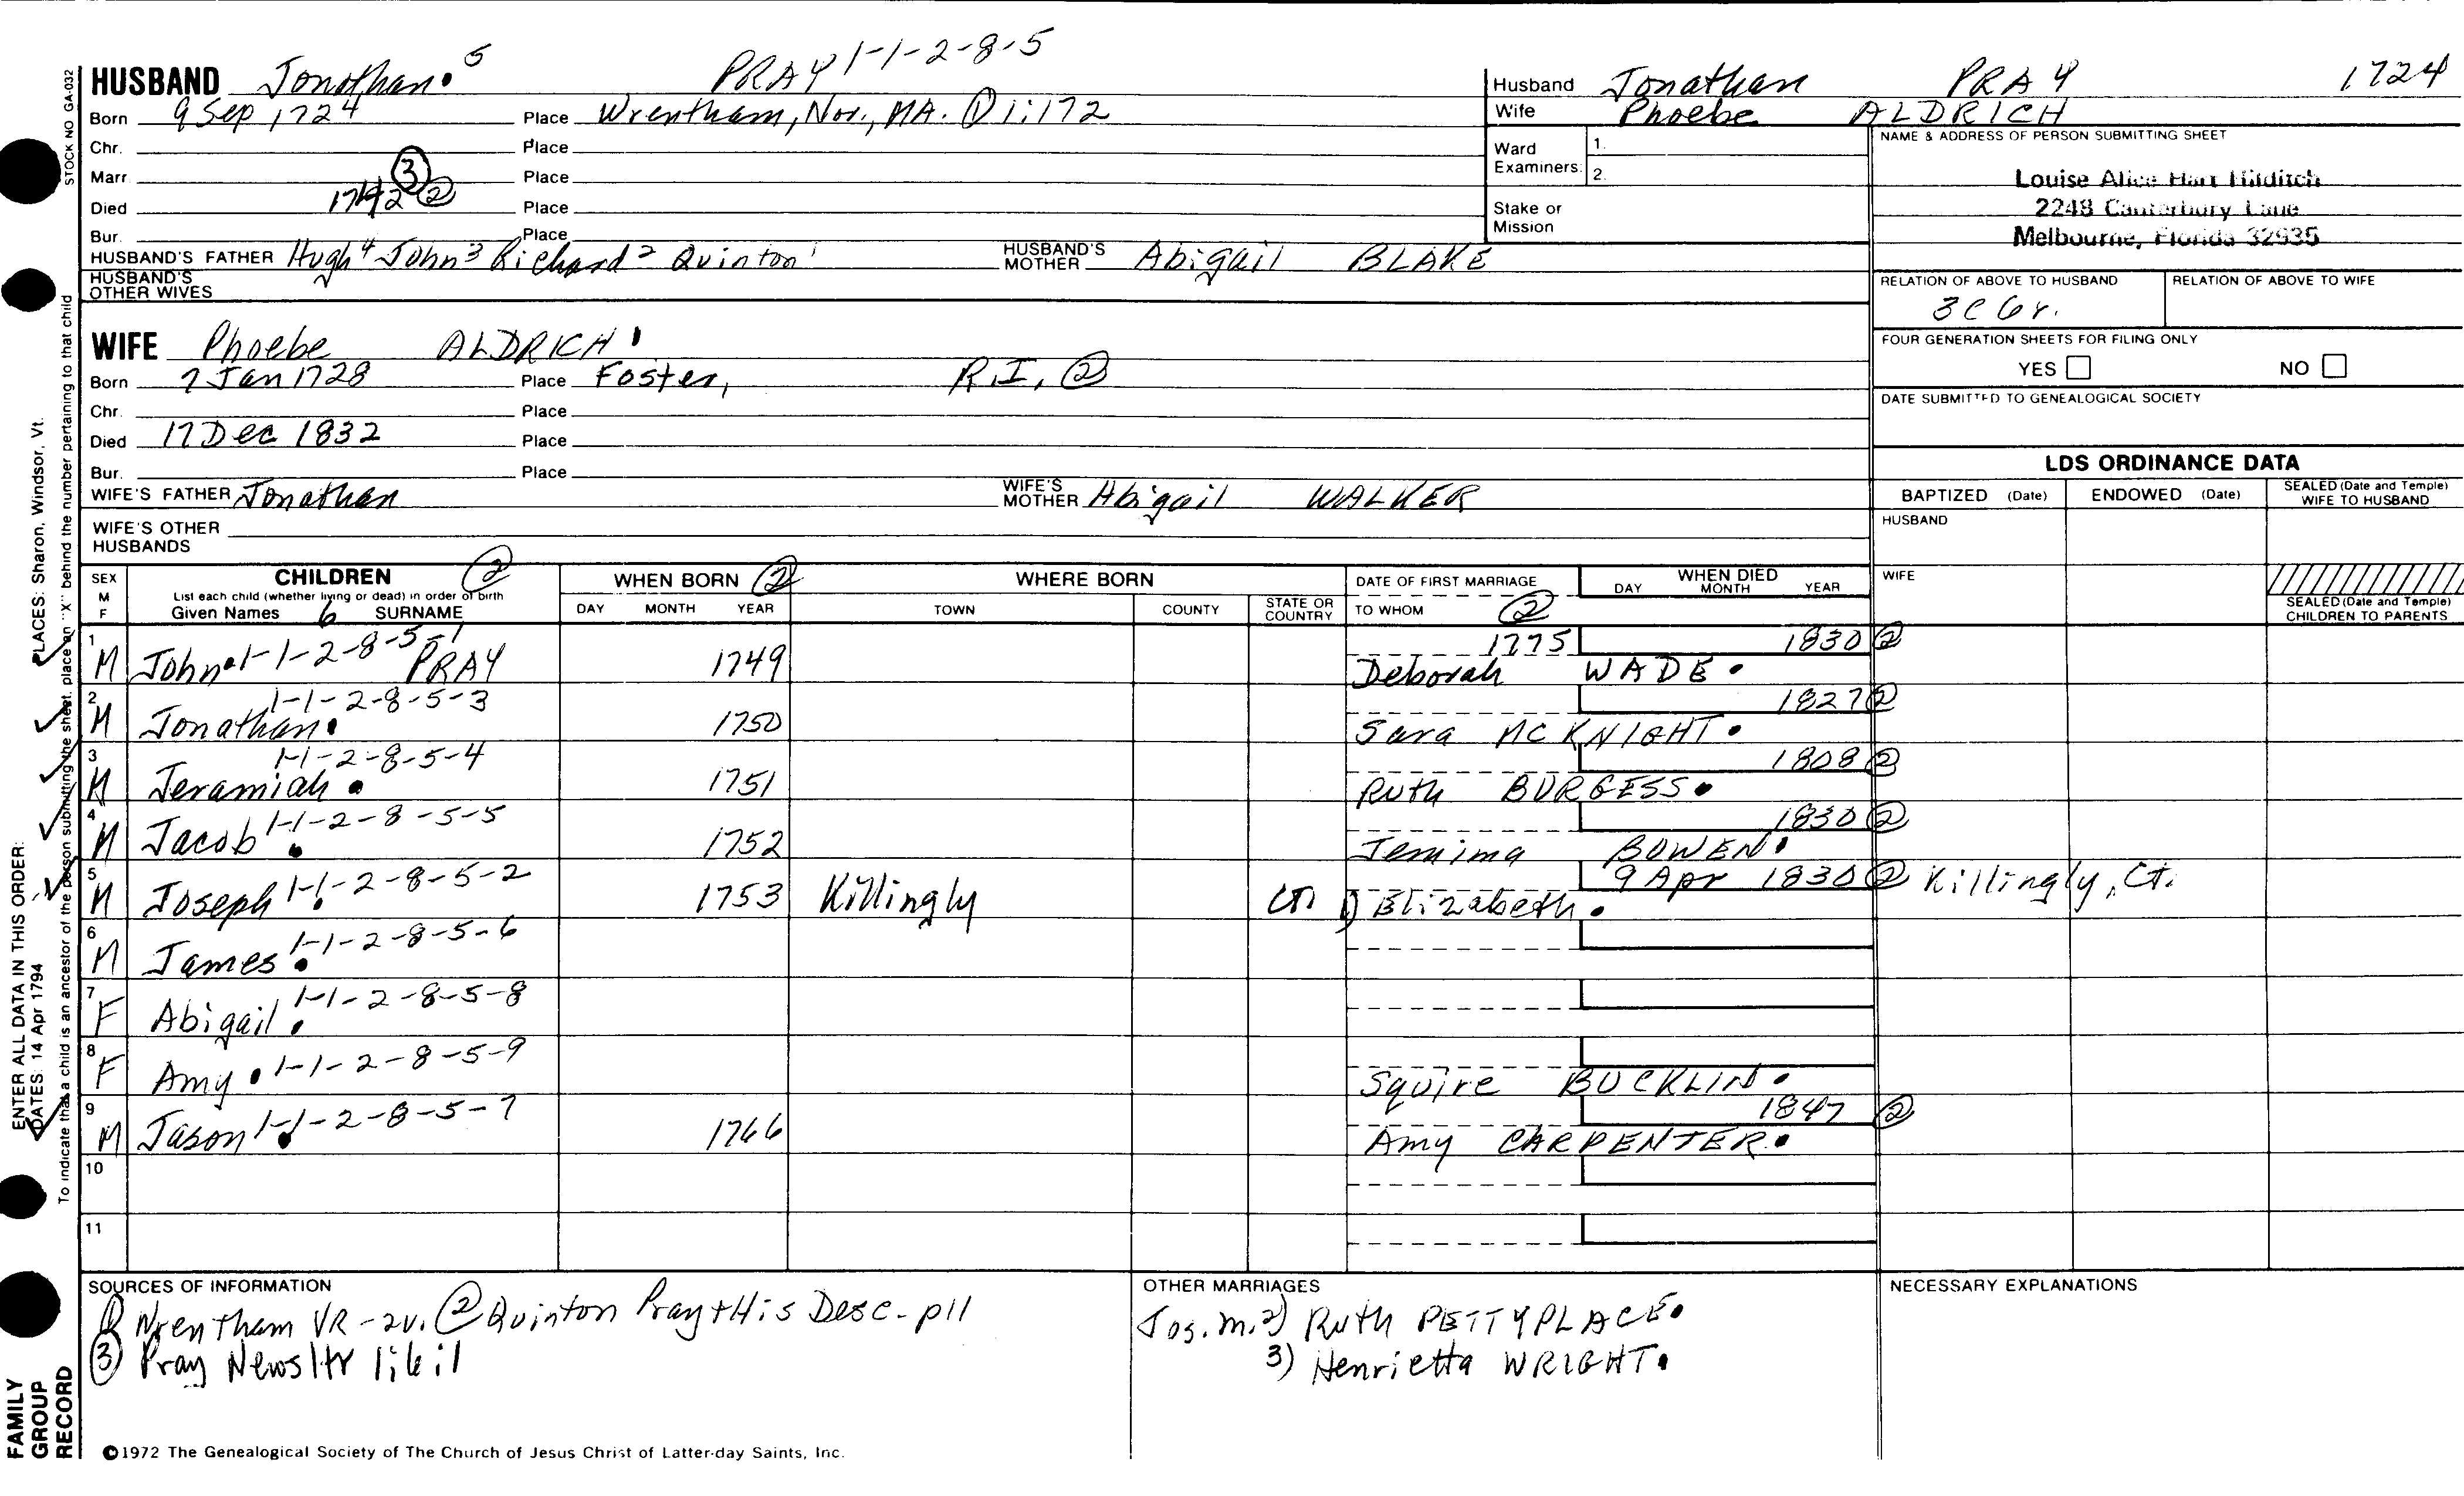 STOCK NO GA-032
HUSBAND Jonathan 5 PRAY 1-1-2-8-5
Born 9 Sep 1724 Place Wrentham, Nor., MA. ① 1:172
Chr. Place
Marr. ③ Place
Died 1742 ② Place
Bur. Place
HUSBAND'S FATHER Hugh 4 John 3 Richard 2 Quinton 1 HUSBAND'S MOTHER Abigail BLAKE
HUSBAND'S OTHER WIVES
WIFE Phoebe ALDRICH
Born 7 Jan 1728 Place Foster, R.I. ②
Chr. Place
Died 17 Dec 1832 Place
Bur. Place
WIFE'S FATHER Jonathan WIFE'S MOTHER Abigail WALKER
WIFE'S OTHER HUSBANDS
Husband Jonathan PRAY 1724
Wife Phoebe ALDRICH
Ward Examiners: 1.
2.
Stake or Mission
NAME & ADDRESS OF PERSON SUBMITTING SHEET
Louise Alice Hart Hilditch
2248 Canterbury Lane
Melbourne, Florida 32935
RELATION OF ABOVE TO HUSBAND RELATION OF ABOVE TO WIFE
3C 6r.
FOUR GENERATION SHEETS FOR FILING ONLY
YES NO
DATE SUBMITTED TO GENEALOGICAL SOCIETY
LDS ORDINANCE DATA
BAPTIZED (Date) ENDOWED (Date) SEALED (Date and Temple) WIFE TO HUSBAND
HUSBAND
WIFE
SEALED (Date and Temple) CHILDREN TO PARENTS
SEX M F CHILDREN ② WHEN BORN ② WHERE BORN DATE OF FIRST MARRIAGE WHEN DIED
List each child (whether living or dead) in order of birth DAY MONTH YEAR
Given Names 6 SURNAME DAY MONTH YEAR TOWN COUNTY STATE OR COUNTRY TO WHOM ②
1 M John 1-1-2-8-5-1 PRAY 1749 1775 1830 ②
Deborah WADE
2 M Jonathan 1-1-2-8-5-3 1750 1827 ②
Sara MCKNIGHT
3 M Jeramiah 1-1-2-8-5-4 1751 1808 ②
Ruth BURGESS
4 M Jacob 1-1-2-8-5-5 1752 1830 ②
Jemima BOWEN
5 M Joseph 1-1-2-8-5-2 1753 Killingly CT 9 Apr 1830 ② Killingly, Ct.
1) Elizabeth
6 M James 1-1-2-8-5-6
7 F Abigail 1-1-2-8-5-8
8 F Amy 1-1-2-8-5-9
Squire BUCKLIN
9 M Jason 1-1-2-8-5-7 1766 1847 ②
Amy CARPENTER
10
11
SOURCES OF INFORMATION
① Wrentham VR-2v. ② Quinton Pray + His Desc. p11
③ Pray Newsltr 1:6:1
OTHER MARRIAGES
Jos. m. 2) Ruth PETTYPLACE
3) Henrietta WRIGHT
NECESSARY EXPLANATIONS
©1972 The Genealogical Society of The Church of Jesus Christ of Latter-day Saints, Inc.
ENTER ALL DATA IN THIS ORDER:
DATES: 14 Apr 1794 PLACES: Sharon, Windsor, Vt.
To indicate that a child is an ancestor of the person submitting the sheet, place an "X" behind the number pertaining to that child
FAMILY GROUP RECORD